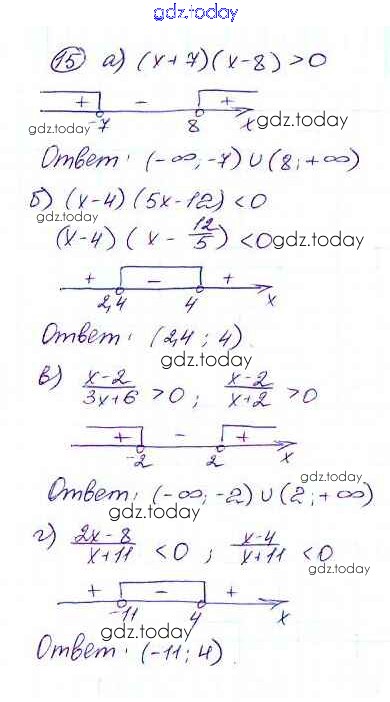 gdz.today
15 а) (x+7)(x-8)>0
+ - +
-7 8 x
gdz.today gdz.today
Ответ: (-∞; -7) ∪ (8; +∞)
б) (x-4)(5x-12)<0
gdz.today
(x-4)(x - 12/5) <0
gdz.today
+ - +
2,4 4 x
Ответ: (2,4; 4)
gdz.today
в) x-2/3x+6 >0; x-2/x+2 >0
gdz.today
+ - +
-2 2 x
gdz.today
Ответ: (-∞; -2) ∪ (2; +∞)
gdz.today
г) 2x-8/x+11 <0; x-4/x+11 <0
gdz.today
+ - +
-11 4 x
gdz.today
Ответ: (-11; 4)